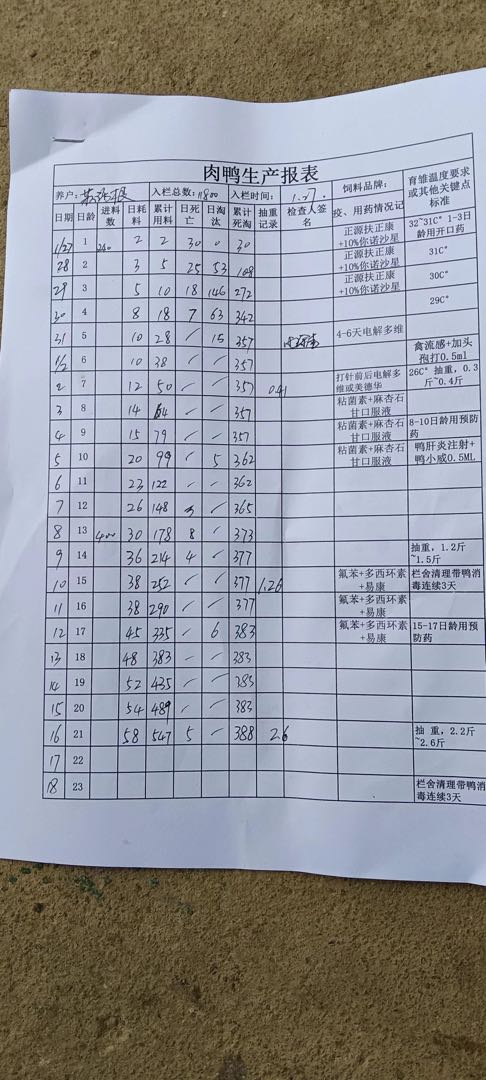 肉鸭生产报表
养户: 入栏总数: 11800 入栏时间: 1.27. 饲料品牌: 育雏温度要求或其他关键点标准
日期 日龄 进料数 日耗料 累计用料 日死亡 日淘汰 累计死淘 抽重记录 检查人签名 疫、用药情况记
1/27 1 240 2 2 30 0 30 正源扶正康+10%你诺沙星 32~31C° 1-3日龄用开口药
28 2 3 5 25 53 108 正源扶正康+10%你诺沙星 31C°
29 3 5 10 18 146 272 正源扶正康+10%你诺沙星 30C°
30 4 8 18 7 63 342 29C°
31 5 10 28 / 15 357 4-6天电解多维
1/2 6 10 38 / / 357 禽流感+加头孢打0.5ml
2 7 12 50 / / 357 0.41 打针前后电解多维或美德华 26C° 抽重，0.3斤~0.4斤
3 8 14 64 / / 357 粘菌素+麻杏石甘口服液
4 9 15 79 / / 357 粘菌素+麻杏石甘口服液 8-10日龄用预防药
5 10 20 99 / 5 362 粘菌素+麻杏石甘口服液 鸭肝炎注射+鸭小威0.5ML
6 11 23 122 / / 362
7 12 26 148 3 / 365
8 13 400 30 178 8 / 373
9 14 36 214 4 / 377 抽重，1.2斤~1.5斤
10 15 38 252 / / 377 1.26 氟苯+多西环素+易康 栏舍清理带鸭消毒连续3天
11 16 38 290 / / 377 氟苯+多西环素+易康
12 17 45 335 / 6 383 氟苯+多西环素+易康 15-17日龄用预防药
13 18 48 383 / / 383
14 19 52 435 / / 383
15 20 54 489 / / 383
16 21 58 547 5 / 388 2.6 抽 重，2.2斤~2.6斤
17 22
18 23 栏舍清理带鸭消毒连续3天